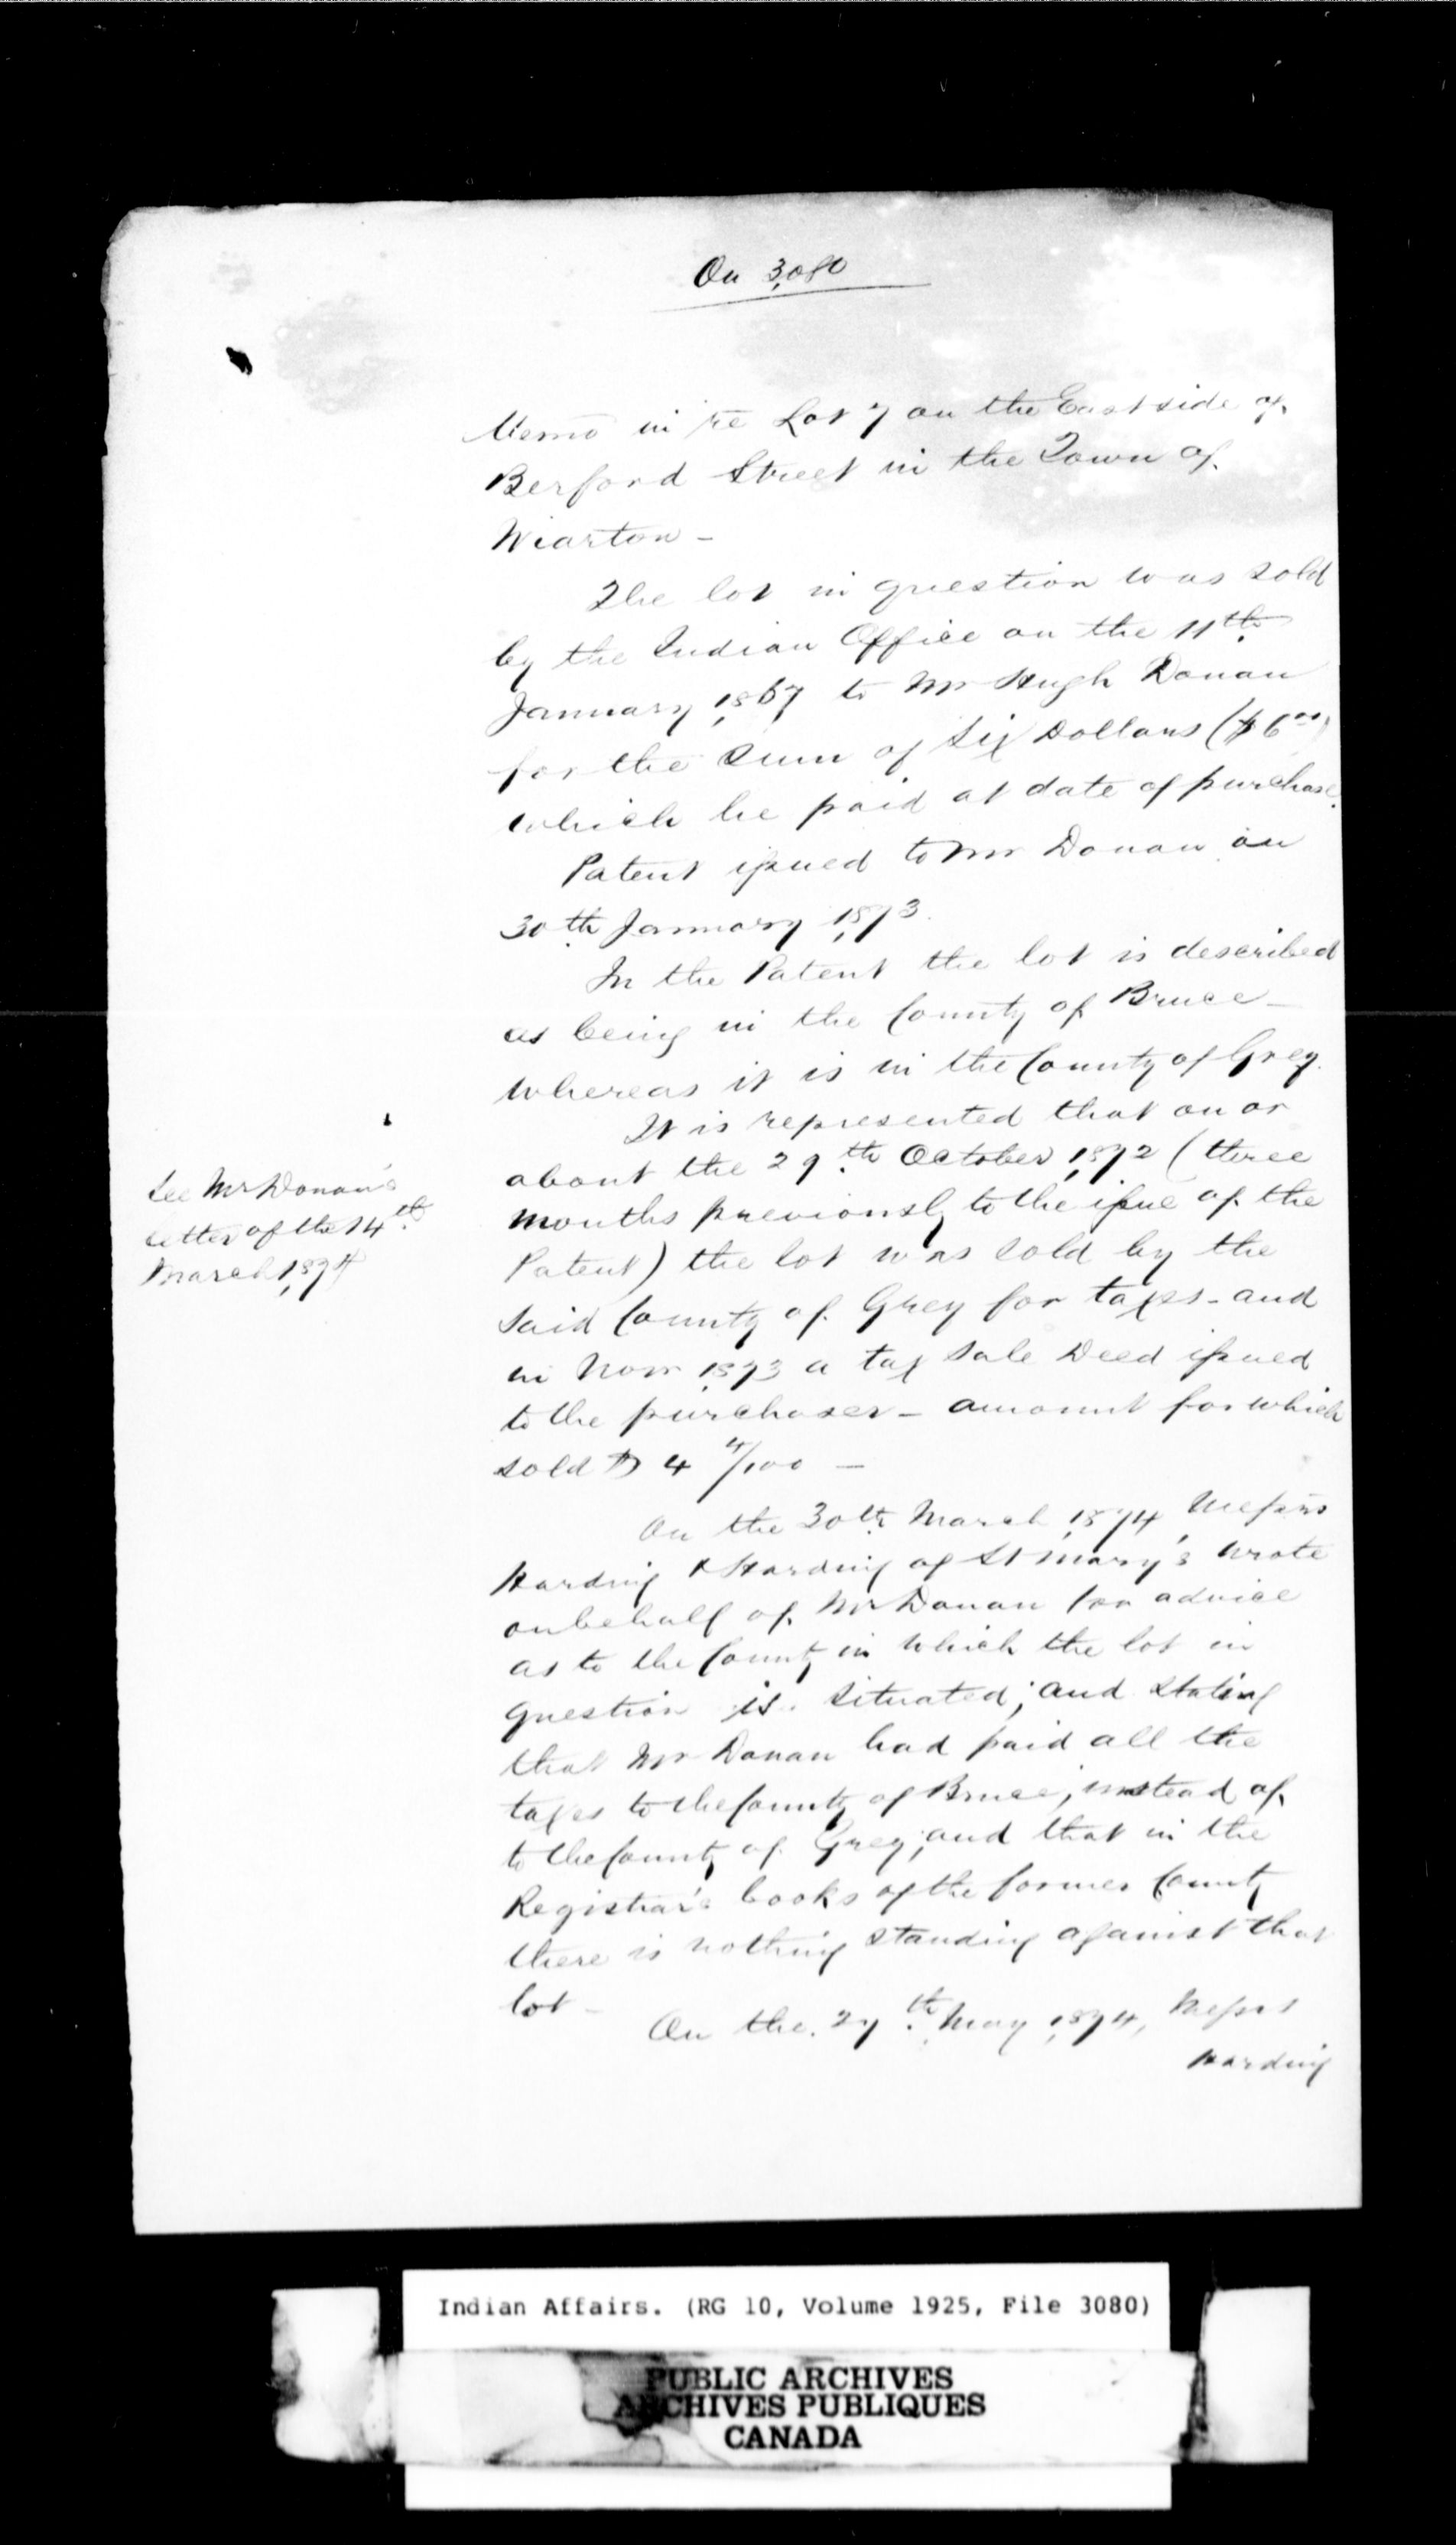 On 3,080
Memo in re Lot 7 on the East side of
Berford Street in the Town of
Wiarton -
The lot in question was sold
by the Indian Office on the 11th
January 1,867 to Mr Hugh Donan
for the sum of Six Dollars ($6 00)
which he paid at date of purchase.
Patent issued to Mr Donan on
30th January 1,873.
In the Patent the lot is described
as being in the County of Bruce -
whereas it is in the County of Grey.
It is represented that on or
about the 29th October 1,872 (three
months previously to the issue of the
Patent) the lot was sold by the
said County of Grey for taxes - and
in Novr 1,873 a tax sale Deed issued
to the purchaser - amount for which
sold $ 4 4/100 -
See Mr Donan's
letter of the 14th
March 1,874
On the 30th March 1,874, Messrs
Harding & Harding of St Mary's wrote
on behalf of Mr Donan for advice
as to the County in which the lot in
question is situated; and stating
that Mr Donan had paid all the
taxes to the County of Bruce, instead of
to the County of Grey; and that in the
Registrar's books of the former County
there is nothing standing against that
lot -
On the 27th May 1,874, Messrs
Harding
Indian Affairs. (RG 10, Volume 1925, File 3080)
PUBLIC ARCHIVES
ARCHIVES PUBLIQUES
CANADA